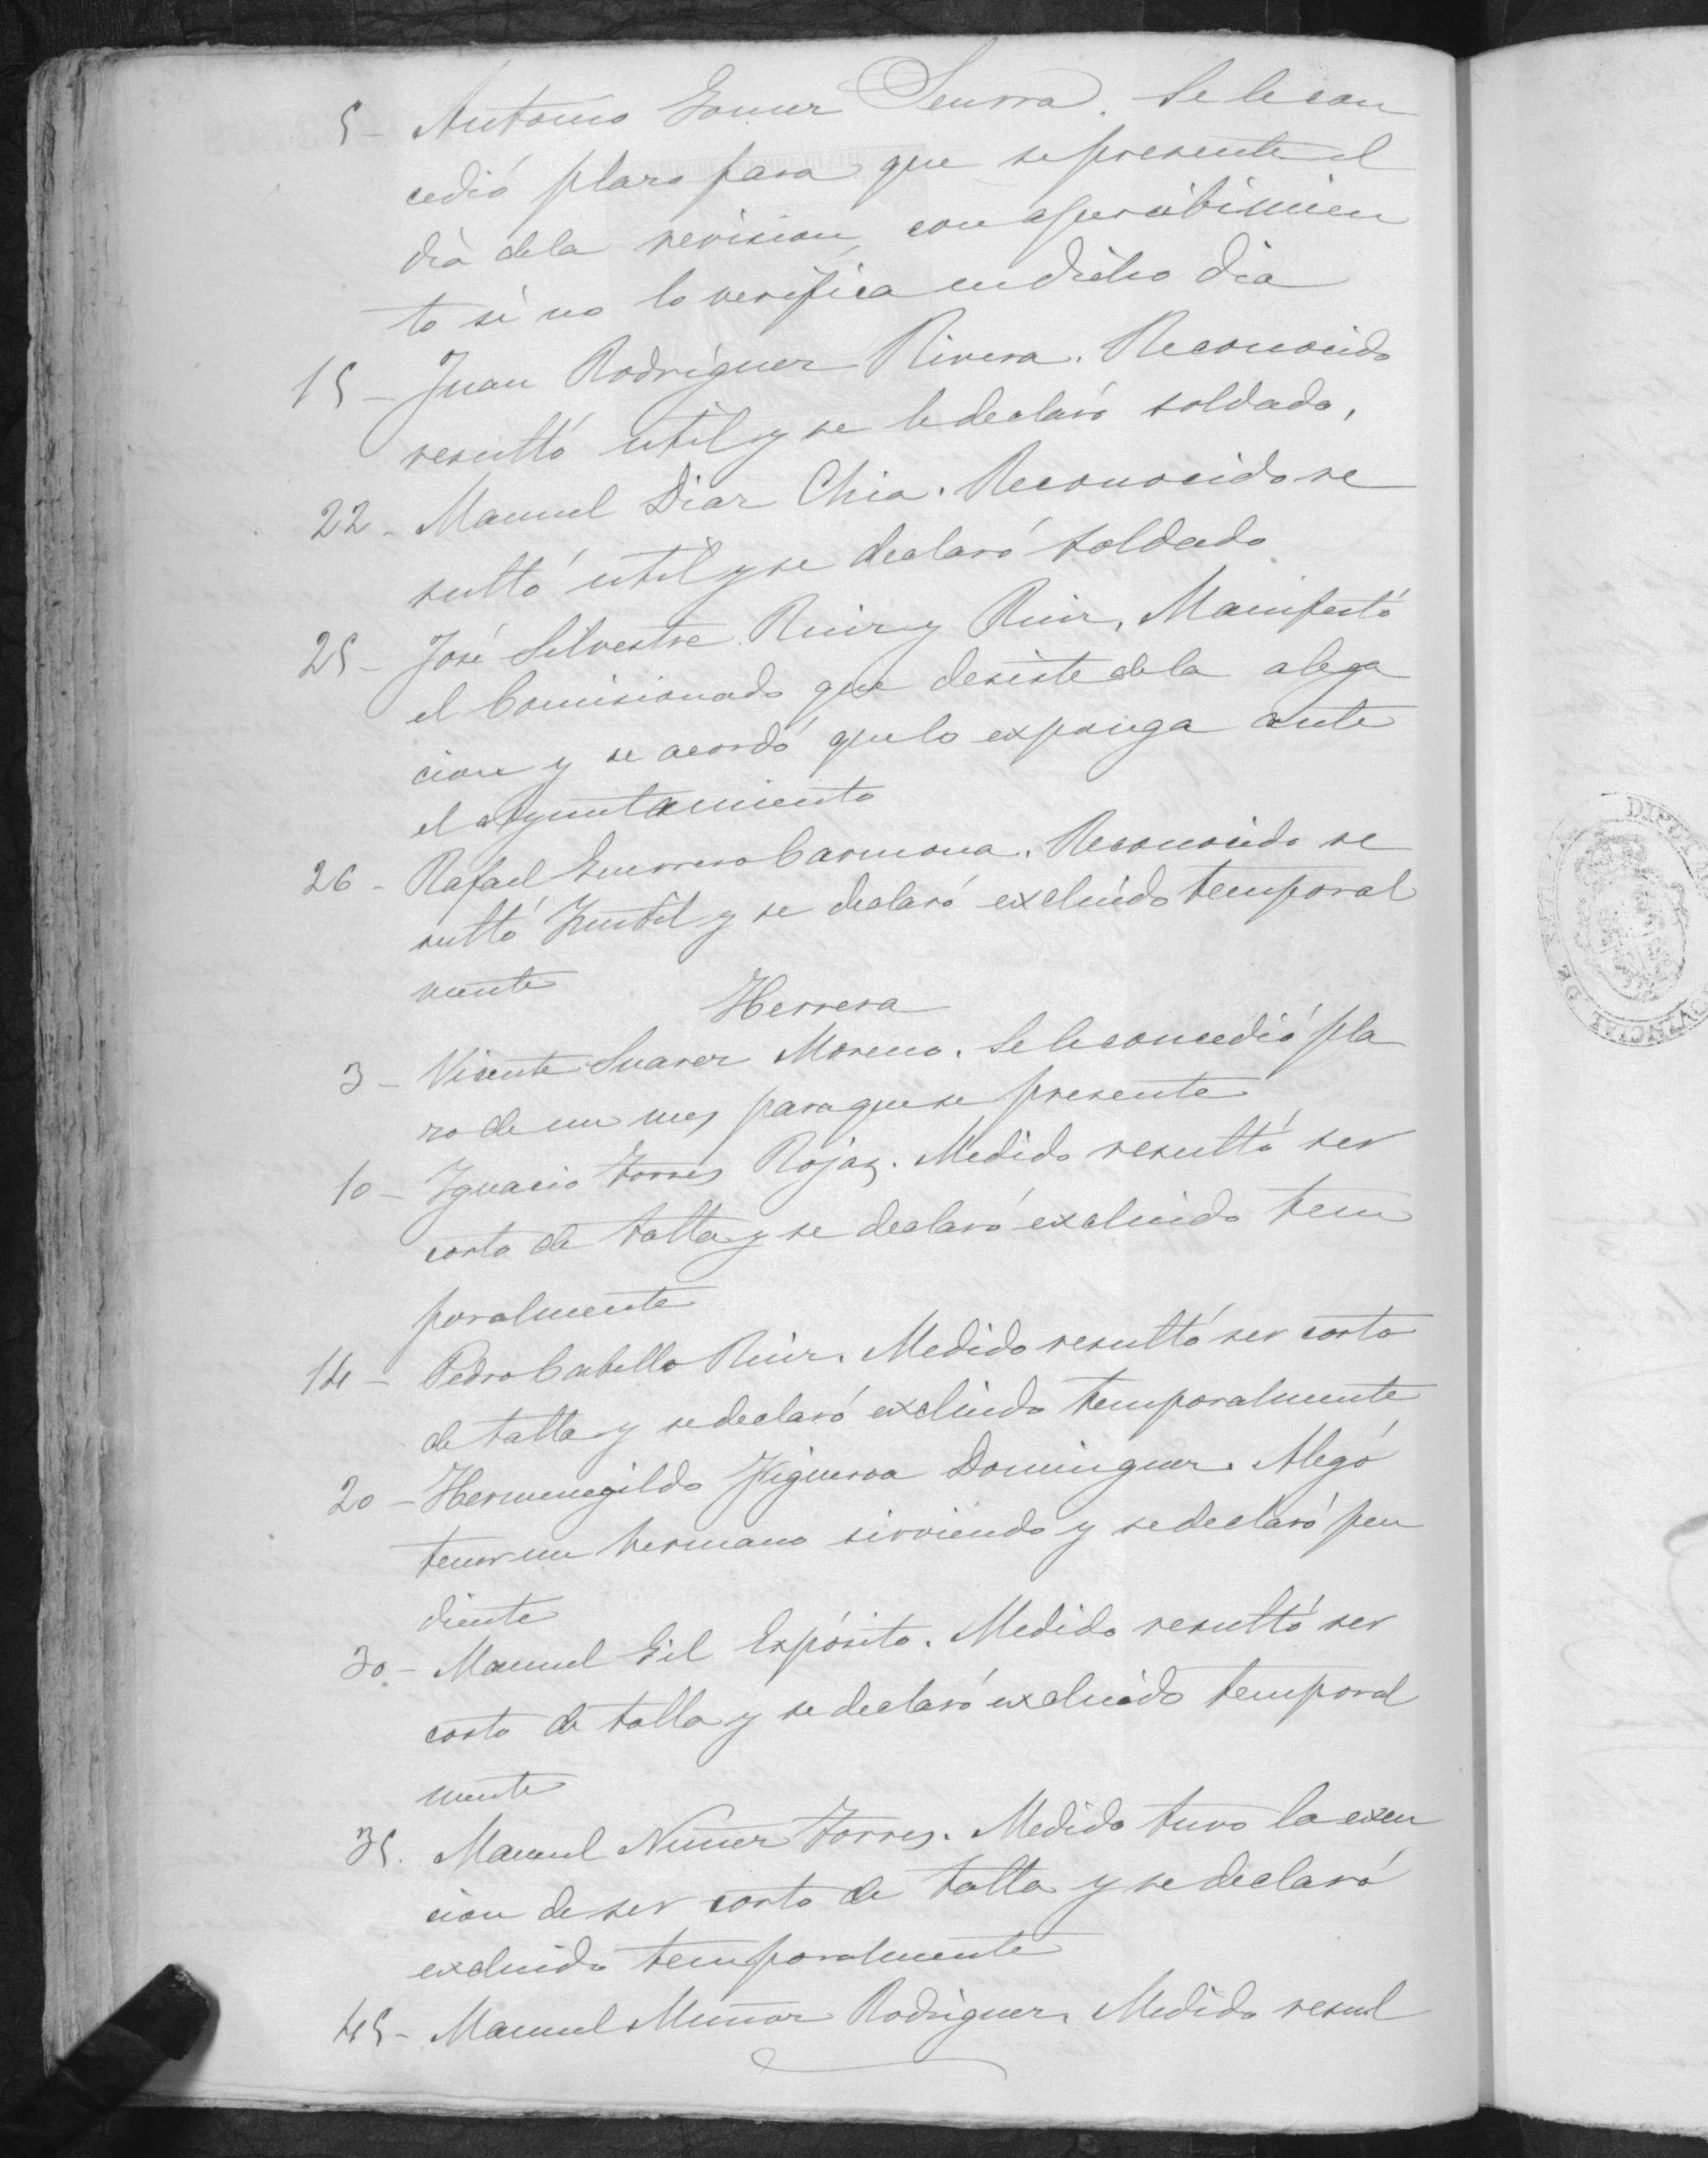 5 - Antonio Gomez Senra. Se le con
cedió plazo para que se presente el
día de la revision, con apercibimien
to si no lo verifica en dicho dia
15 - Juan Rodriguez Rivera. Reconocido
resultó util y se le declaró soldado.
22 - Manuel Diaz Chia. Reconocido re
sultó util y se declaró soldado
25 - José Silvestre Ruiz y Ruiz, Manifestó
el Comisionado que desiste de la alega
cion y se acordó que lo exponga ante
el Ayuntamiento
26 - Rafael Guerrero Carmona. Reconocido re
sultó Inutil y se declaró excluido temporal
mente
Herrera
3 - Vicente Suarez Moreno. Se le concedió pla
zo de un mes para que se presente
10 - Ignacio Torres Rojas. Medido resultó ser
corto de talla y se declaró excluido tem
poralmente
14 - Pedro Cabello Ruiz. Medido resultó ser corto
de talla y se declaró excluido temporalmente
20 - Hermenegildo Figueroa Dominguez. Alegó
tener un hermano sirviendo y se declaró pen
diente
30 - Manuel Gil Expósito. Medido resultó ser
corto de talla y se declaró excluido temporal
mente
35. Manuel Nuñez Torres. Medido tuvo la exen
cion de ser corto de talla y se declaró
excluido temporalmente
45 - Manuel Muñoz Rodriguez. Medido resul